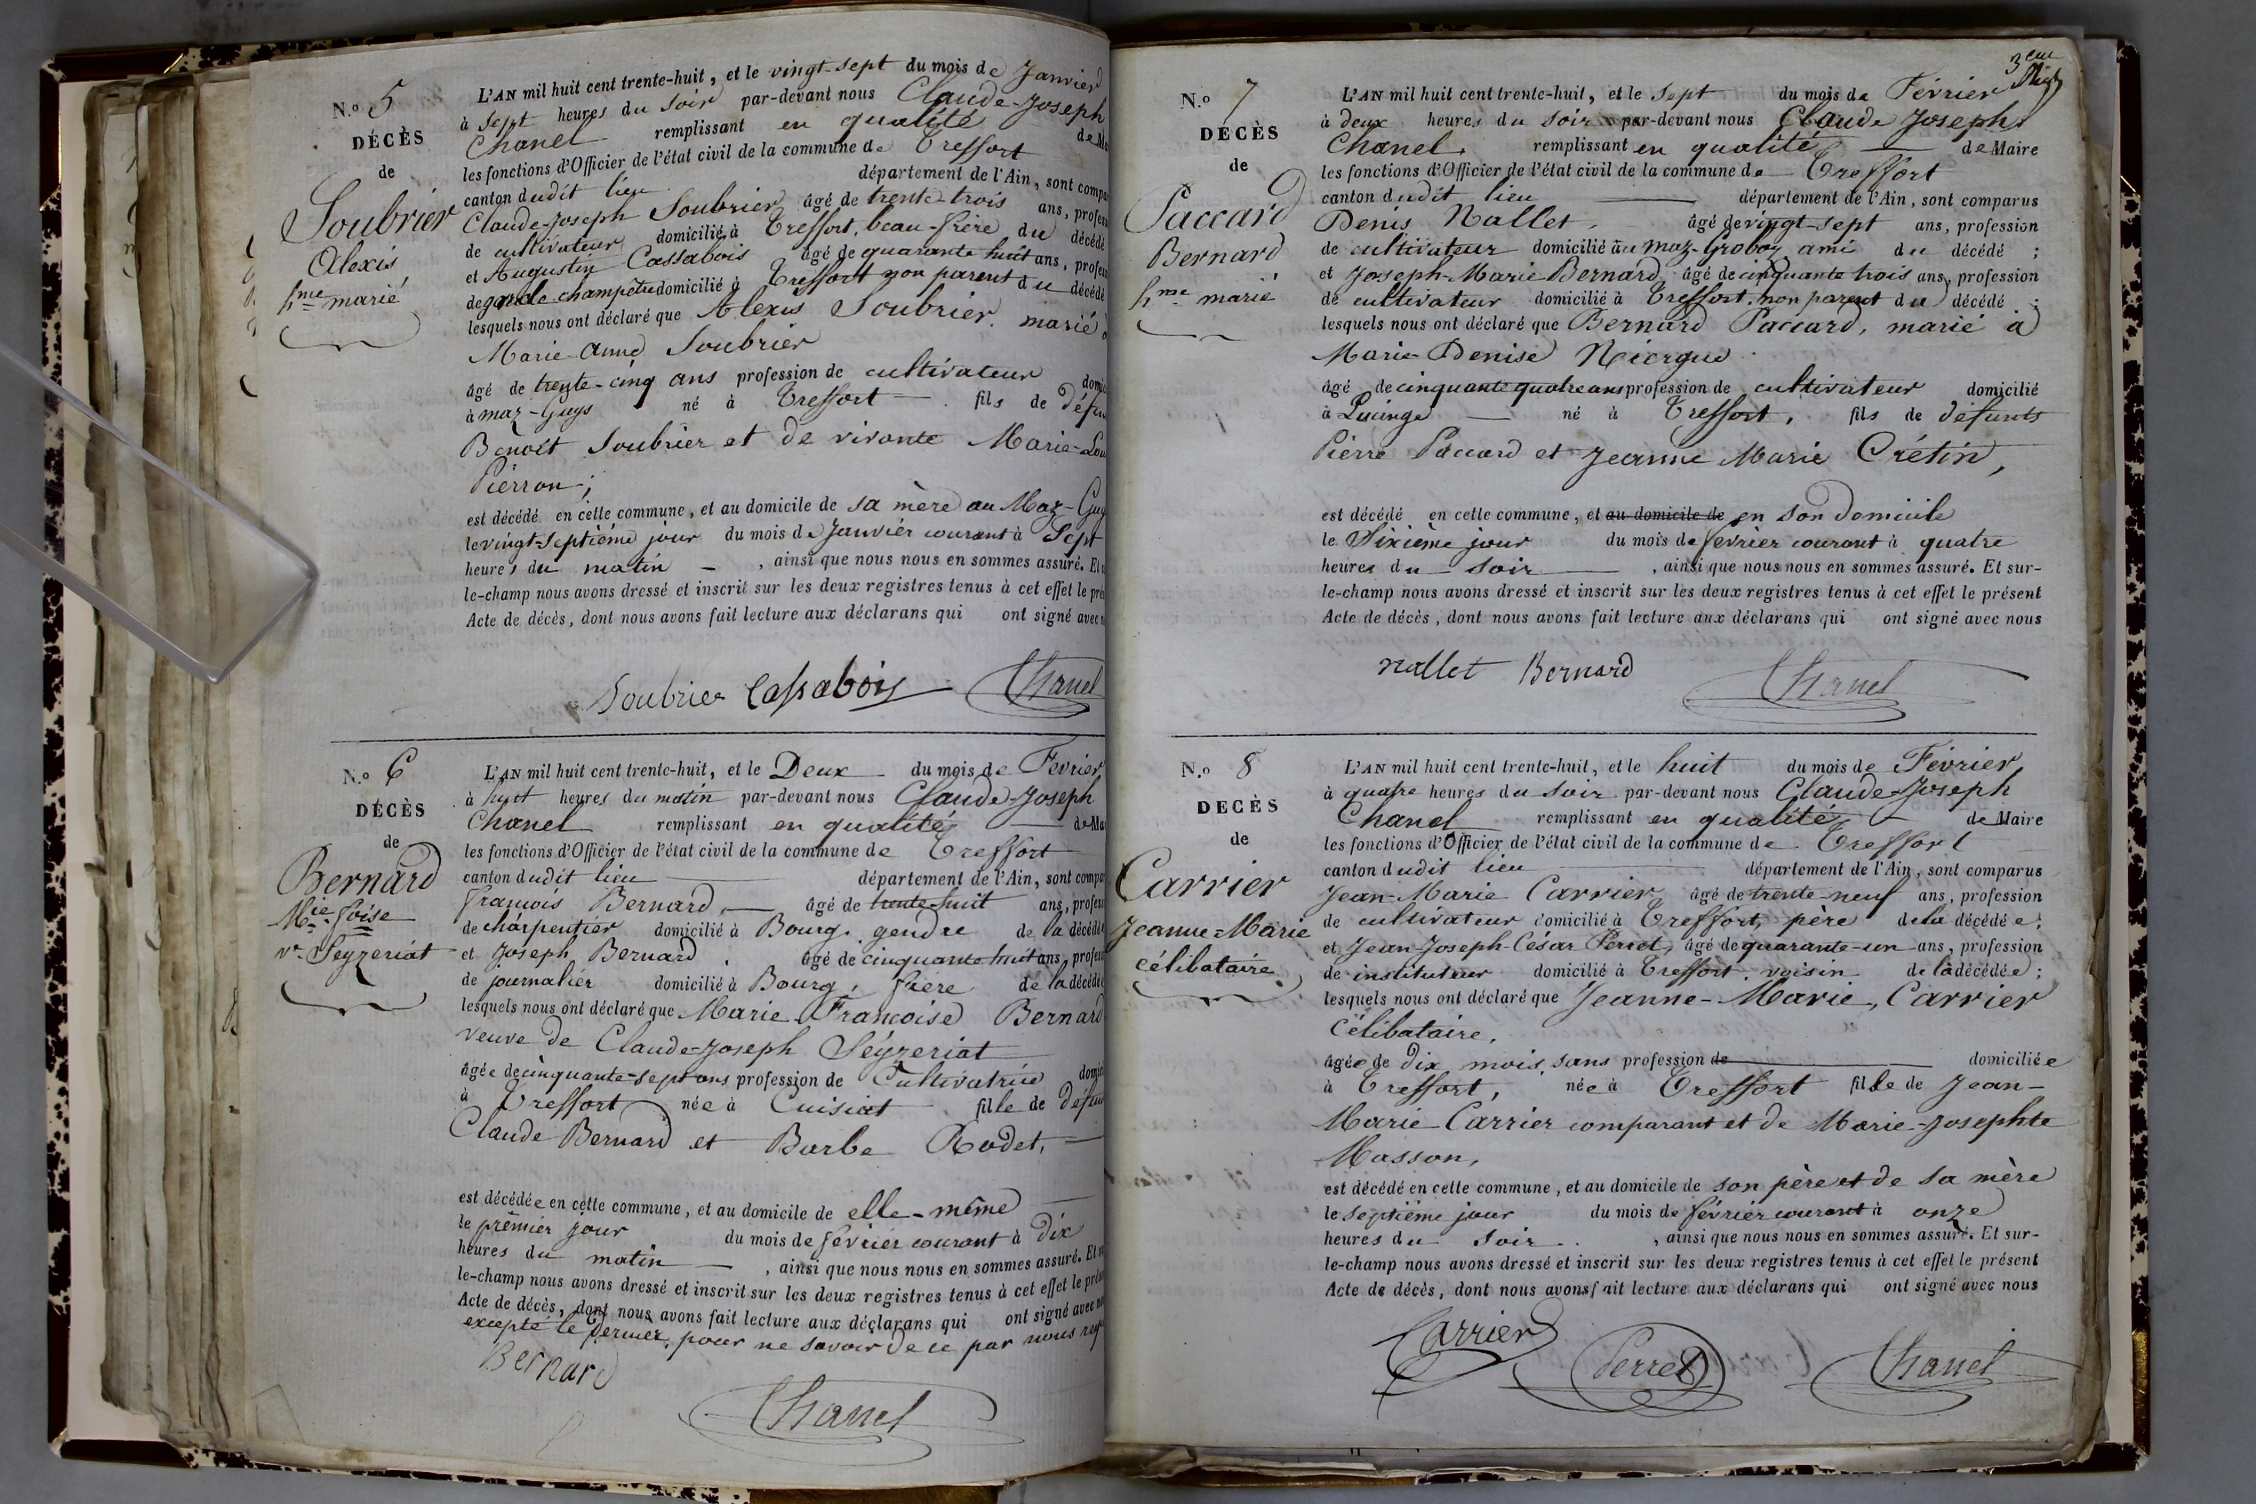 N.o 5
DÉCÈS
de
Soubrier
Alexis
hme marié
L'AN mil huit cent trente-huit, et le vingt-sept du mois de Janvier
à sept heures du soir par-devant nous Claude-Joseph
Chanel remplissant en qualité de Ma
les fonctions d'Officier de l'état civil de la commune de Treffort
canton dudit lieu département de l'Ain, sont compa
Claude-Joseph Soubrier âgé de trente trois ans, profess
de cultivateur domicilié à Treffort, beau-frère du décédé
et Augustin Cassabois âgé de quarante huit ans, profess
de garde champêtre domicilié à Treffort non parent du décédé
lesquels nous ont déclaré que Alexis Soubrier, marié à
Marie-Anne Soubrier
âgé de trente-cinq ans profession de cultivateur domic
à maz-Guys né à Treffort fils de défun
Benoît Soubrier et de vivante Marie-Lou
Pierron;
est décédé en cette commune, et au domicile de sa mère au Maz-Guy
le vingt-septième jour du mois de Janvier courant à Sept
heures du matin, ainsi que nous nous en sommes assuré. Et
le-champ nous avons dressé et inscrit sur les deux registres tenus à cet effet le pré
Acte de décès, dont nous avons fait lecture aux déclarans qui ont signé avec n
Soubrier Cassabois Chanel
N.o 6
DÉCÈS
de
Bernard
Mie foise
ve Seyzeriat
L'AN mil huit cent trente-huit, et le Deux du mois de Février
à huit heures du matin par-devant nous Claude-Joseph
Chanel remplissant en qualité de Ma
les fonctions d'Officier de l'état civil de la commune de Treffort
canton dudit lieu département de l'Ain, sont compa
François Bernard, âgé de trente-huit ans, profess
de charpentier domicilié à Bourg, gendre de la décédée
et Joseph Bernard, âgé de cinquante huit ans, profess
de journalier domicilié à Bourg, frère de la décédée
lesquels nous ont déclaré que Marie Françoise Bernard
veuve de Claude-Joseph Séyzeriat
âgée de cinquante-sept ans profession de Cultivatrice domici
à Treffort née à Cuisiat fille de défun
Claude Bernard et Barbe Rodet,
est décédée en cette commune, et au domicile de elle-même
le premier jour du mois de février courant à dix
heures du matin, ainsi que nous nous en sommes assuré. Et
le-champ nous avons dressé et inscrit sur les deux registres tenus à cet effet le prés
Acte de décès, dont nous avons fait lecture aux déclarans qui ont signé avec no
excepté le Dernier, pour ne savoir de ce par nous requ
Bernard
Chanel
3eme
N.o 7
DÉCÈS
de
Paccard
Bernard
hme marié
L'AN mil huit cent trente-huit, et le sept du mois de Février
à deux heures du soir par-devant nous Claude Joseph
Chanel, remplissant en qualité de Maire
les fonctions d'Officier de l'état civil de la commune de Treffort
canton dudit lieu département de l'Ain, sont comparus
Denis Nallet, âgé de vingt-sept ans, profession
de cultivateur domicilié au maz-Groboz, ami du décédé ;
et Joseph-Marie Bernard, âgé de cinquante trois ans, profession
de cultivateur domicilié à Treffort, non parent du décédé ;
lesquels nous ont déclaré que Bernard Paccard, marié à
Marie-Denise Niergue
âgé de cinquante quatre ans profession de cultivateur domicilié
à Lucinge né à Treffort, fils de défunts
Pierre Paccard et Jeanne Marie Crétin,
est décédé en cette commune, et au domicile de en son domicile
le Sixième jour du mois de février courant à quatre
heures du soir, ainsi que nous nous en sommes assuré. Et sur-
le-champ nous avons dressé et inscrit sur les deux registres tenus à cet effet le présent
Acte de décès, dont nous avons fait lecture aux déclarans qui ont signé avec nous
nallet Bernard Chanel
N.o 8
DÉCÈS
de
Carrier
Jeanne-Marie
célibataire
L'AN mil huit cent trente-huit, et le huit du mois de Février
à quatre heures du soir par-devant nous Claude-Joseph
Chanel remplissant en qualité de Maire
les fonctions d'Officier de l'état civil de la commune de Treffort
canton dudit lieu département de l'Ain, sont comparus
Jean-Marie Carrier âgé de trente neuf ans, profession
de cultivateur domicilié à Treffort, père de la décédée;
et Jean-Joseph-César Perret, âgé de quarante-un ans, profession
de instituteur domicilié à Treffort, voisin de la décédée;
lesquels nous ont déclaré que Jeanne-Marie, Carrier
célibataire,
âgée de dix mois, sans profession de domiciliée
à Treffort, née à Treffort fille de Jean-
Marie-Carrier comparant et de Marie-Josephte
Masson,
est décédé en cette commune, et au domicile de son père et de sa mère
le septième jour du mois de février courant à onze
heures du soir, ainsi que nous nous en sommes assuré. Et sur-
le-champ nous avons dressé et inscrit sur les deux registres tenus à cet effet le présent
Acte de décès, dont nous avons fait lecture aux déclarans qui ont signé avec nous
Carrier Perret Chanel